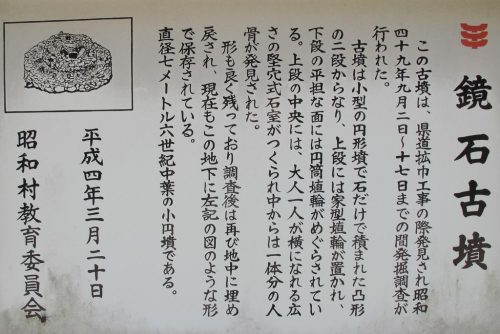 鏡石古墳
この古墳は、県道拡巾工事の際発見され昭和
四十九年九月二日～十七日までの間発掘調査が
行われた。
古墳は小型の円形墳で石だけで積まれた凸形
の二段からなり、上段には家型埴輪が置かれ、
下段の平担な面には円筒埴輪がめぐらされてい
る。上段の中央には、大人一人が横になれる広
さの竪穴式石室がつくられ中からは一体分の人
骨が発見された。
形も良く残っており調査後は再び地中に埋め
戻され、現在もこの地下に左記の図のような形
で保存されている。
直径七メートル六世紀中葉の小円墳である。
平成四年三月二十日
昭和村教育委員会